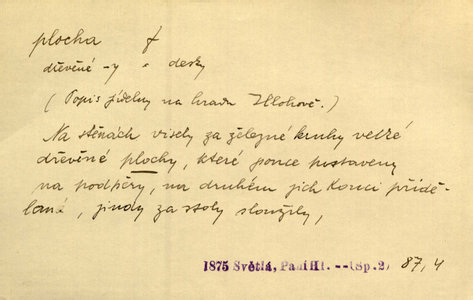 plocha f
dřevěné -y = desky
(Popis jídelny na hradu Hlohově.)
Na stěnách visely za železné kruhy velké
dřevěné plochy, které pouze postaveny
na podpěry, na druhém jich konci přidě-
lané, jindy za stoly sloužily,
1875 Světlá, Paní Hl. -- (Sp.2) 87,4